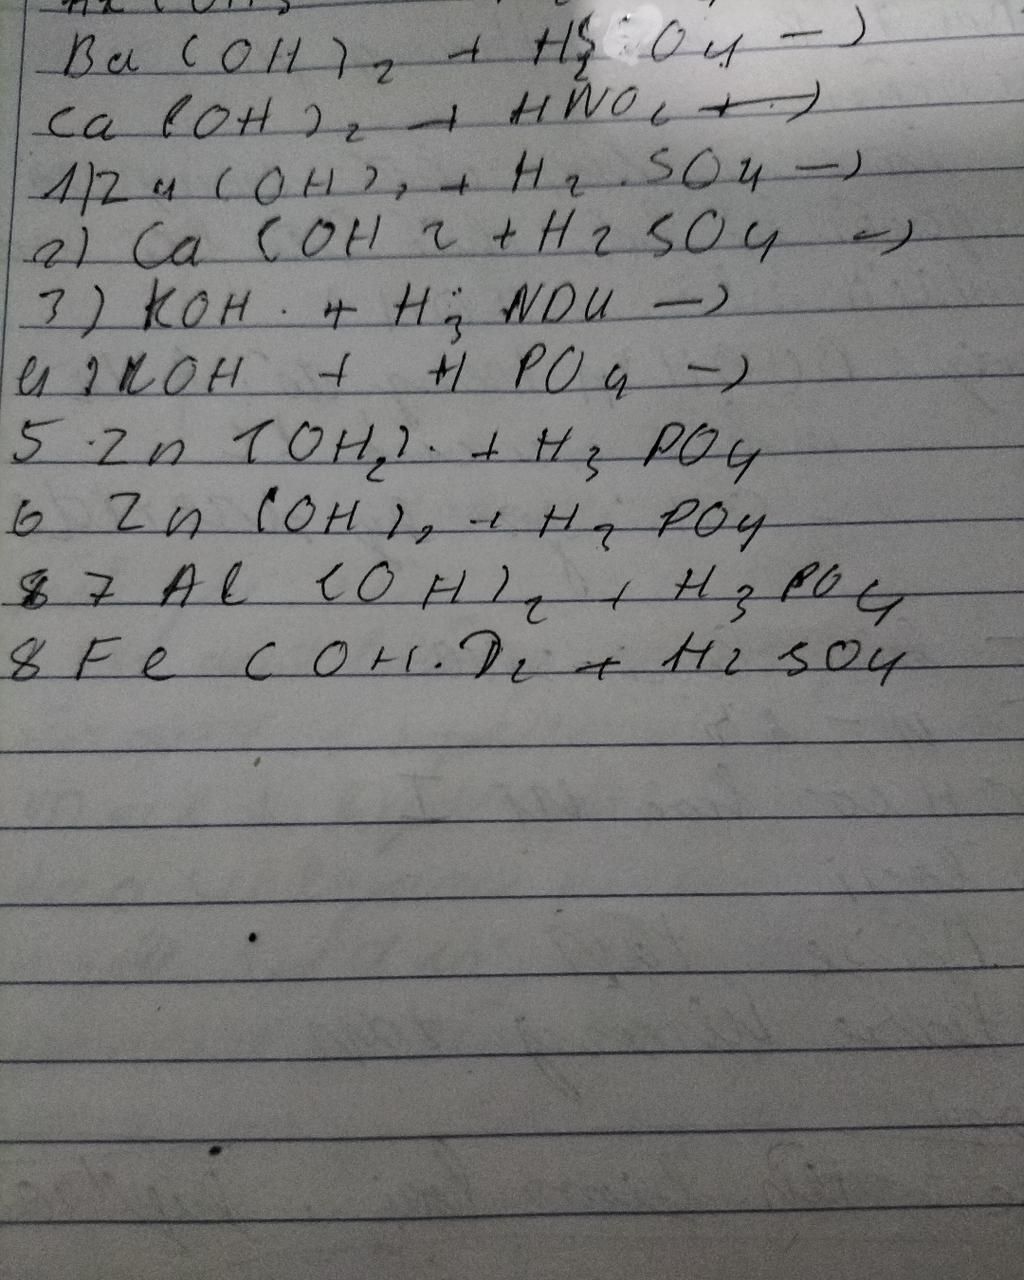 Ba (OH)2 + H2SO4 →
Ca (OH)2 + HNO2 →
1) Zn (OH)2 + H2 SO4 →
2) Ca (OH 2 + H2 SO4 →
3) KOH + H3 NO4 →
4) KOH + H PO4 →
5 Zn (OH2) + H3 PO4
6 Zn (OH)2 + H2 PO4
7 Al (OH)2 + H3 PO4
8 Fe (OH)2 + H2 SO4